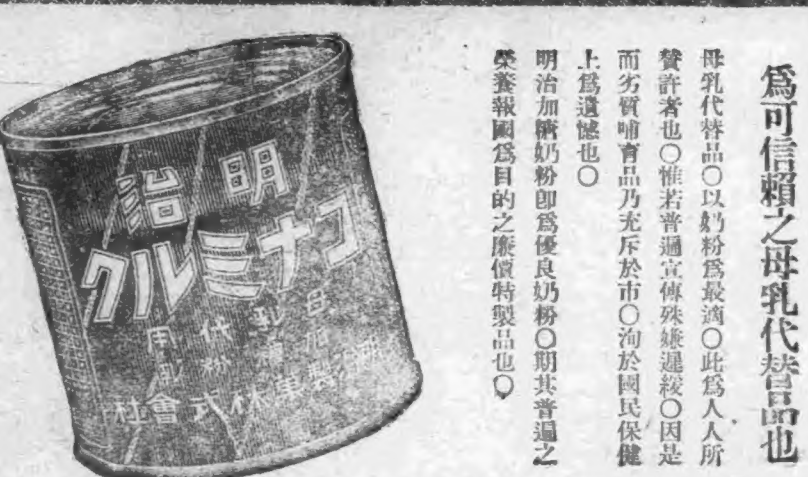 爲可信賴之母乳代替品也
母乳代替品〇以奶粉爲最適〇此爲人人所
贊許者也〇惟若普遍宣傳殊嫌遲緩〇因是
而劣質哺育品乃充斥於市〇洵於國民保健
上爲遺憾也〇
明治加糖奶粉卽爲優良奶粉〇期其普遍之
榮養報國爲目的之廉價特製品也〇
明治
コナミルク
母乳代用
製菓株式會社